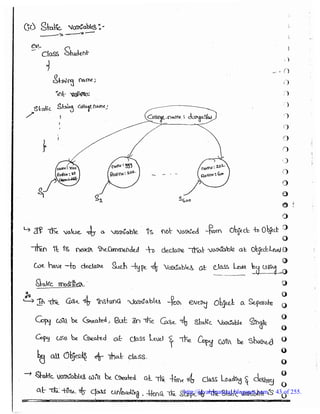 (ii) Static variables :-
Ex:
class Student
{
String name;
int
static String collegename;
}
College name : durgasoftw
name:
name: yyy
name: zzz
S1
S2
S600
↳ If the value of a variable is not varied from object to object
then it is never recommended to declare that variable at object level
we have to declare such type of variables at class level by using
static modifier.
→ In the case of instance variables for every object a separate
copy will be created, but in the case of static variable single
copy will be created at class level & the copy will be shared
by all objects of that class.
→ Static variables will be created at the time of class loading & destroy
at the time of class unloading. Hence the scope of the static variable is
43 of 255.